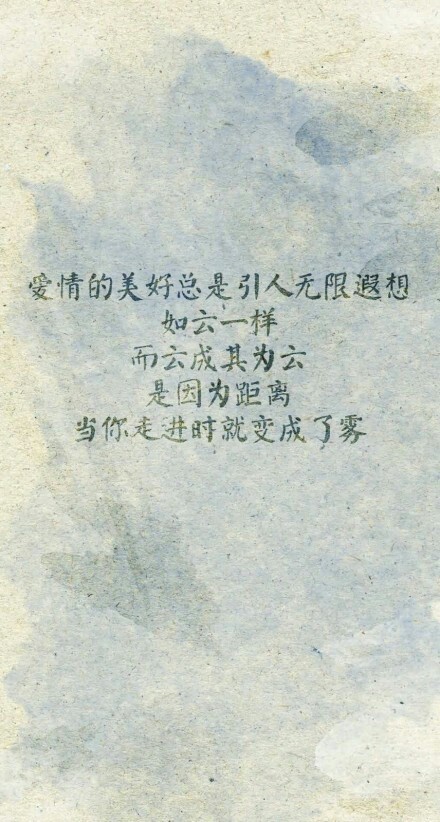 爱情的美好总是引人无限遐想
如云一样
而云成其为云
是因为距离
当你走进时就变成了雾